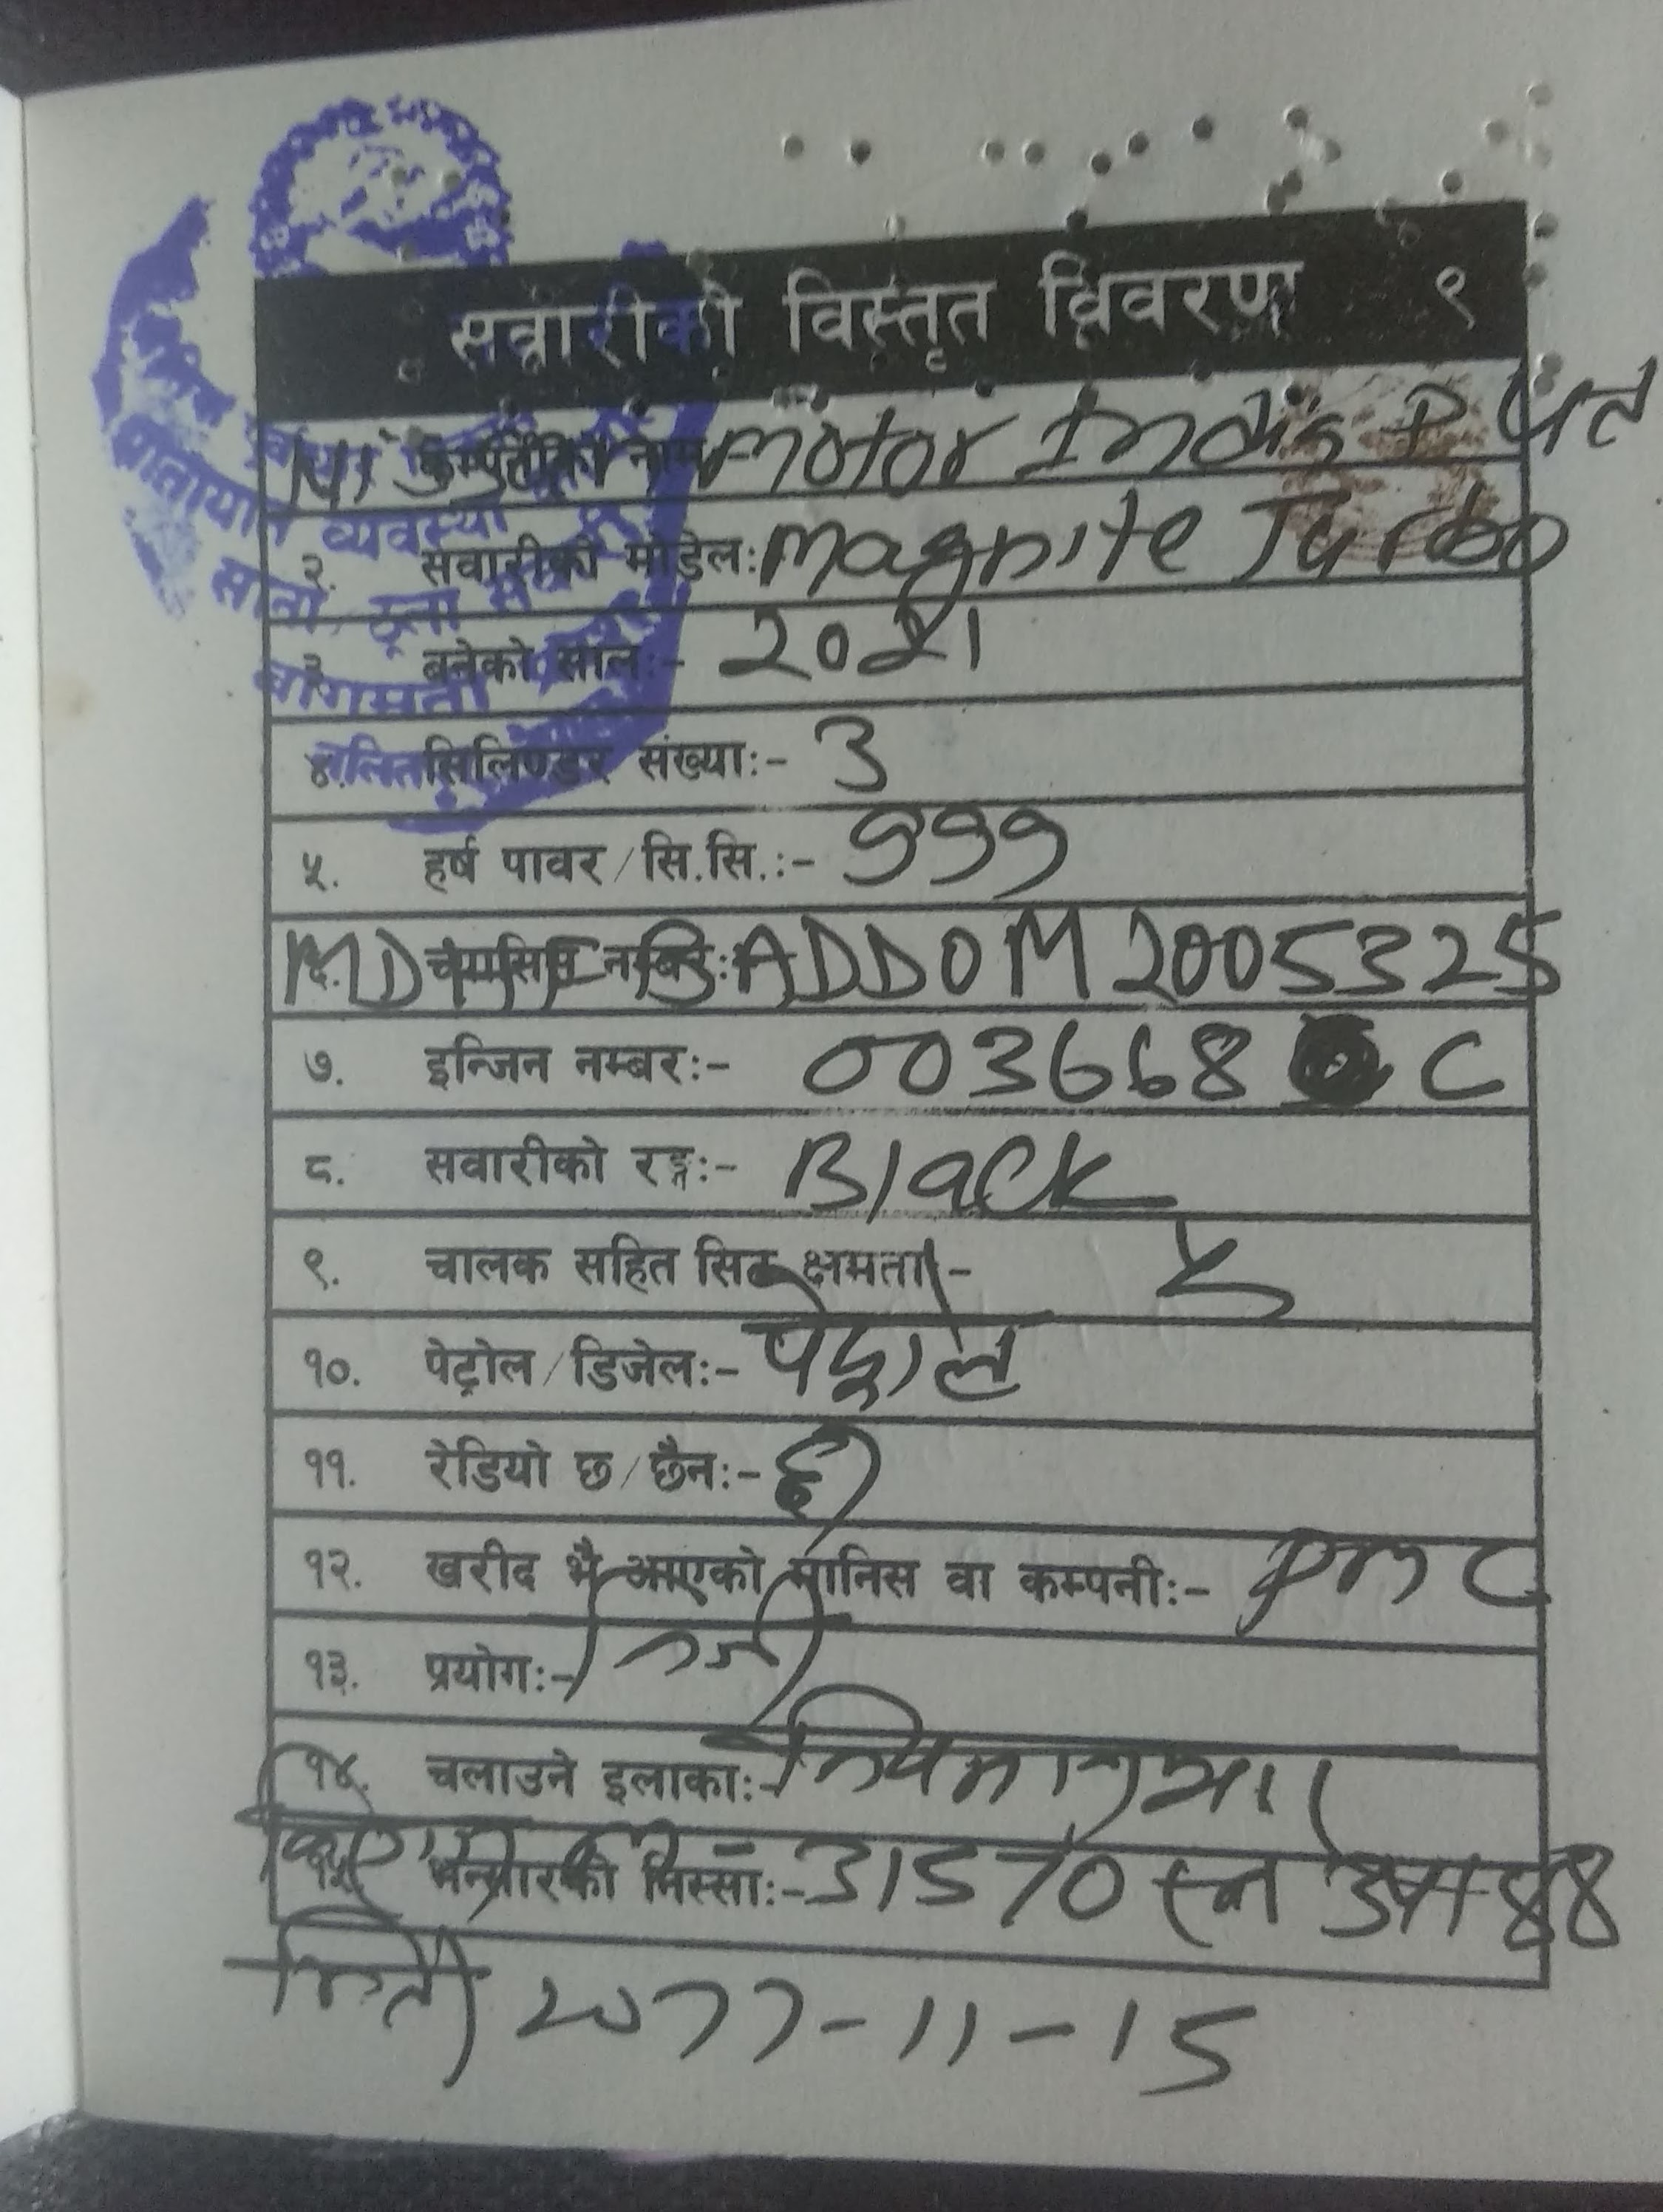 सवारीको विस्तृत विवरण ९
कम्पनीको नाम motor India Pvt
२. सवारीको मोडेल: Magnite Turbo
३. बनेको साल:- 2021
४. सिलिण्डर संख्या:- 3
५. हर्ष पावर/सि.सि.:- 999
६. च्यासिस नम्बर: ADDOM2005325
७. इन्जिन नम्बर:- 003668 C
८. सवारीको रङ्ग:- Black
९. चालक सहित सिट क्षमता:- ५
१०. पेट्रोल/डिजेल:- पेट्रोल
११. रेडियो छ/छैन:- छ
१२. खरीद भै आएको मानिस वा कम्पनी:- PMC
१३. प्रयोग:- निजी
१४. चलाउने इलाका:- नियमानुसार
भन्सारको निस्सा:- 31570
मिति 2077-11-15
यातायात व्यवस्था
साना, ठूला
बागमती